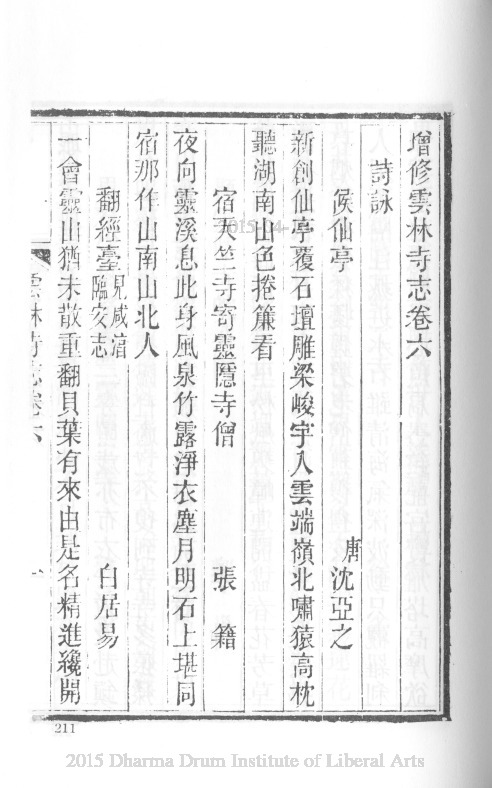 增修雲林寺志卷六
詩詠
侯仙亭 唐 沈亞之
新創仙亭覆石壇雕梁峻宇入雲端嶺北嘯猿高枕
聽湖南山色捲簾看
宿天竺寺寄靈隱寺僧 張籍
夜向靈溪息此身風泉竹露淨衣塵月明石上堪同
宿那作山南山北人
翻經臺 見咸淳臨安志 白居易
一會靈山猶未散重翻貝葉有來由是名精進纔開
雲林寺志卷六 一
211
2015 Dharma Drum Institute of Liberal Arts